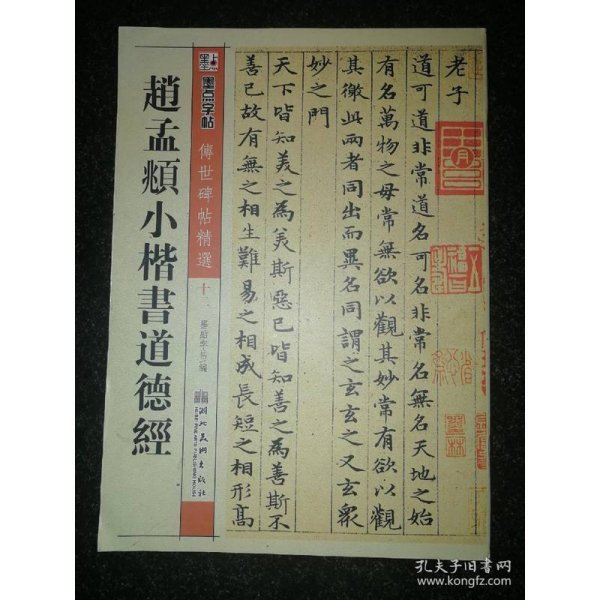 趙孟頫小楷書道德經
墨点
墨点字帖
傳世碑帖精選
十
墨點字帖 編
湖北美術出版社
老子
道可道非常道名可名非常名無名天地之始
有名萬物之母常無欲以觀其妙常有欲以觀
其徼此兩者同出而異名同謂之玄玄之又玄衆
妙之門
天下皆知美之為美斯惡已皆知善之為善斯不
善已故有無之相生難易之相成長短之相形高
孔夫子旧书网
www.kongfz.com